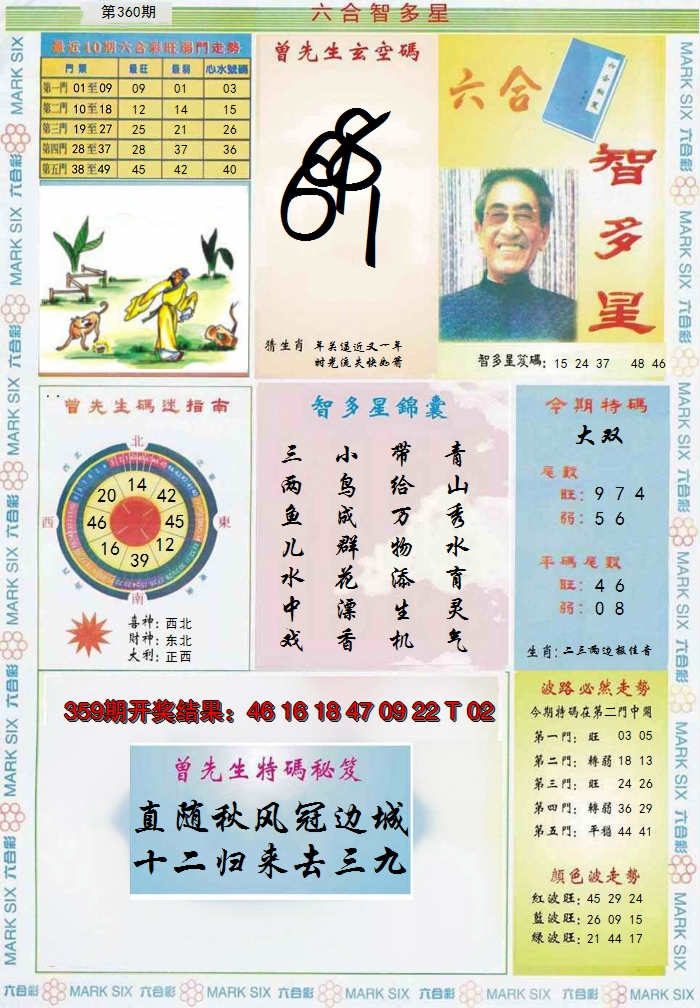 第360期
六合智多星
最近10期六合彩旺弱門走勢
門類 最旺 最弱 心水號碼
第一門 01至09 09 01 03
第二門 10至18 12 14 15
第三門 19至27 25 21 26
第四門 28至37 28 37 36
第五門 38至49 45 42 40
曾先生玄空碼
猜生肖 年关逼近又一年
时光流失快如箭
六合
智多星
智多星笈碼: 15 24 37 48 46
曾先生碼迷指南
北
西
東
南
14
42
45
12
39
16
46
20
喜神: 西北
财神: 东北
大利: 正西
智多星錦囊
青山秀水育灵气
带给万物添生机
小鸟成群花漂香
三两鱼儿水中戏
今期特碼
大双
尾數
旺: 9 7 4
弱: 5 6
平碼尾數
旺: 4 6
弱: 0 8
生肖: 二三两边报佳音
359期开奖结果: 46 16 18 47 09 22 T 02
曾先生特碼秘笈
直随秋风冠边城
十二归来去三九
波路必然走勢
今期特碼在第二門中開
第一門: 旺 03 05
第二門: 轉弱 18 13
第三門: 旺 24 26
第四門: 轉弱 36 29
第五門: 平穩 44 41
顏色波走勢
紅波旺: 45 29 24
藍波旺: 26 09 15
綠波旺: 21 44 17
六合彩 MARK SIX 六合彩 MARK SIX 六合彩 MARK SIX 六合彩 MARK SIX 六合彩